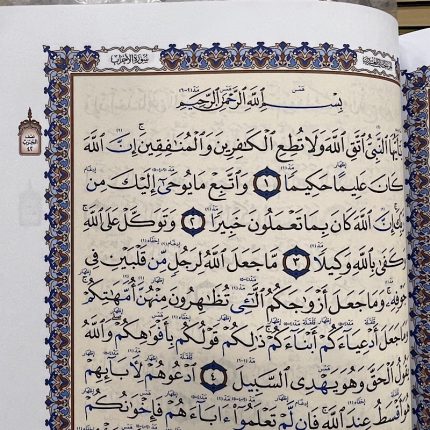 سورة الأحزاب
بسم الله الرحمن الرحيم
يٰٓأَيُّهَا النَّبِيُّ اتَّقِ اللَّهَ وَلَا تُطِعِ الْكَٰفِرِينَ وَالْمُنَٰفِقِينَ إِنَّ اللَّهَ
كَانَ عَلِيمًا حَكِيمًا ١ وَاتَّبِعْ مَا يُوحَىٰٓ إِلَيْكَ مِن
إِنَّ اللَّهَ كَانَ بِمَا تَعْمَلُونَ خَبِيرًا ٢ وَتَوَكَّلْ عَلَى اللَّهِ
كَفَىٰ بِاللَّهِ وَكِيلًا ٣ مَّا جَعَلَ اللَّهُ لِرَجُلٍ مِّن قَلْبَيْنِ فِي
جَوْفِهِ وَمَا جَعَلَ أَزْوَٰجَكُمُ الَّٰٓئِي تُظَٰهِرُونَ مِنْهُنَّ أُمَّهَٰتِكُمْ
وَمَا جَعَلَ أَدْعِيَآءَكُمْ أَبْنَآءَكُمْ ذَٰلِكُمْ قَوْلُكُم بِأَفْوَٰهِكُمْ وَاللَّهُ
يَقُولُ الْحَقَّ وَهُوَ يَهْدِي السَّبِيلَ ٤ ادْعُوهُمْ لِءَابَآئِهِمْ
هُوَ أَقْسَطُ عِندَ اللَّهِ فَإِن لَّمْ تَعْلَمُوٓا۟ ءَابَآءَهُمْ فَإِخْوَٰنُكُمْ